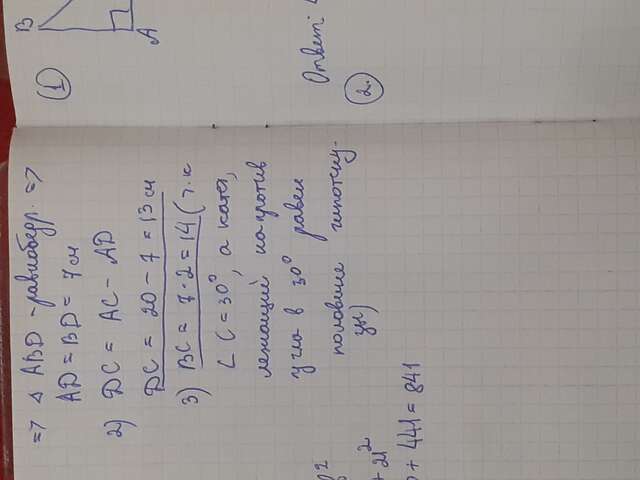 => △ ABD - равнобедр. =>
AD = BD = 7 см
2) DC = AC - AD
DC = 20 - 7 = 13 см
3) BC = 7 · 2 = 14 (т. к
∠ C = 30°, а катет,
лежащий напротив
угла в 30° равен
половине гипотену-
зы)
2
+ 21²
+ 441 = 841
①
B
A
Ответ:
②.